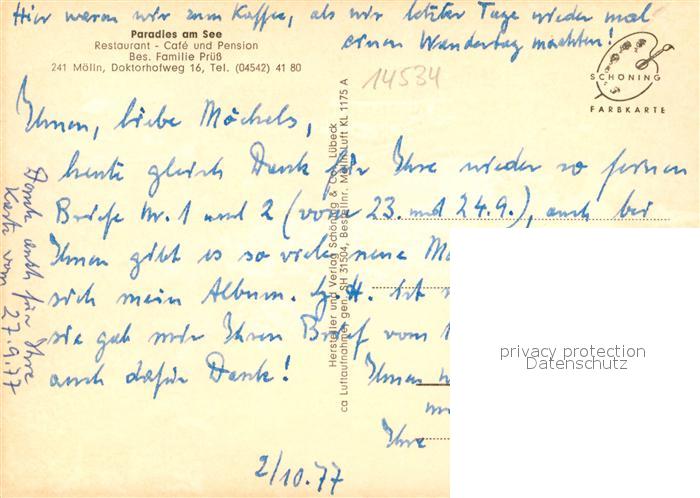 Hier waren wir zum Kaffee, als wir letzter Tage wieder mal
einen Wandertag machten!
Paradies am See
Restaurant - Café und Pension
Bes. Familie Prüß
241 Mölln, Doktorhofweg 16, Tel. (04542) 41 80
14534
SCHÖNING
FARBKARTE
Ihnen, liebe Möchels,
heute gleich Dank für Ihre wieder so
Briefe Nr. 1 und 2 (vom 23. und 24.9.), auch bei
Ihnen gibt es so viele neue
sich mein Album. ist
sie gab mir Ihren Brief vom 1
auch dafür Dank! Ihnen
Ihre
2/10.77
Dank auch für Ihre
Karte vom 27.9.77
Hersteller und Verlag Schöning & Co., Lübeck
ca Luftaufnahme, gen. SH 31504, Bestellnr. Mölln Luft KL 1175 A
privacy protection
Datenschutz